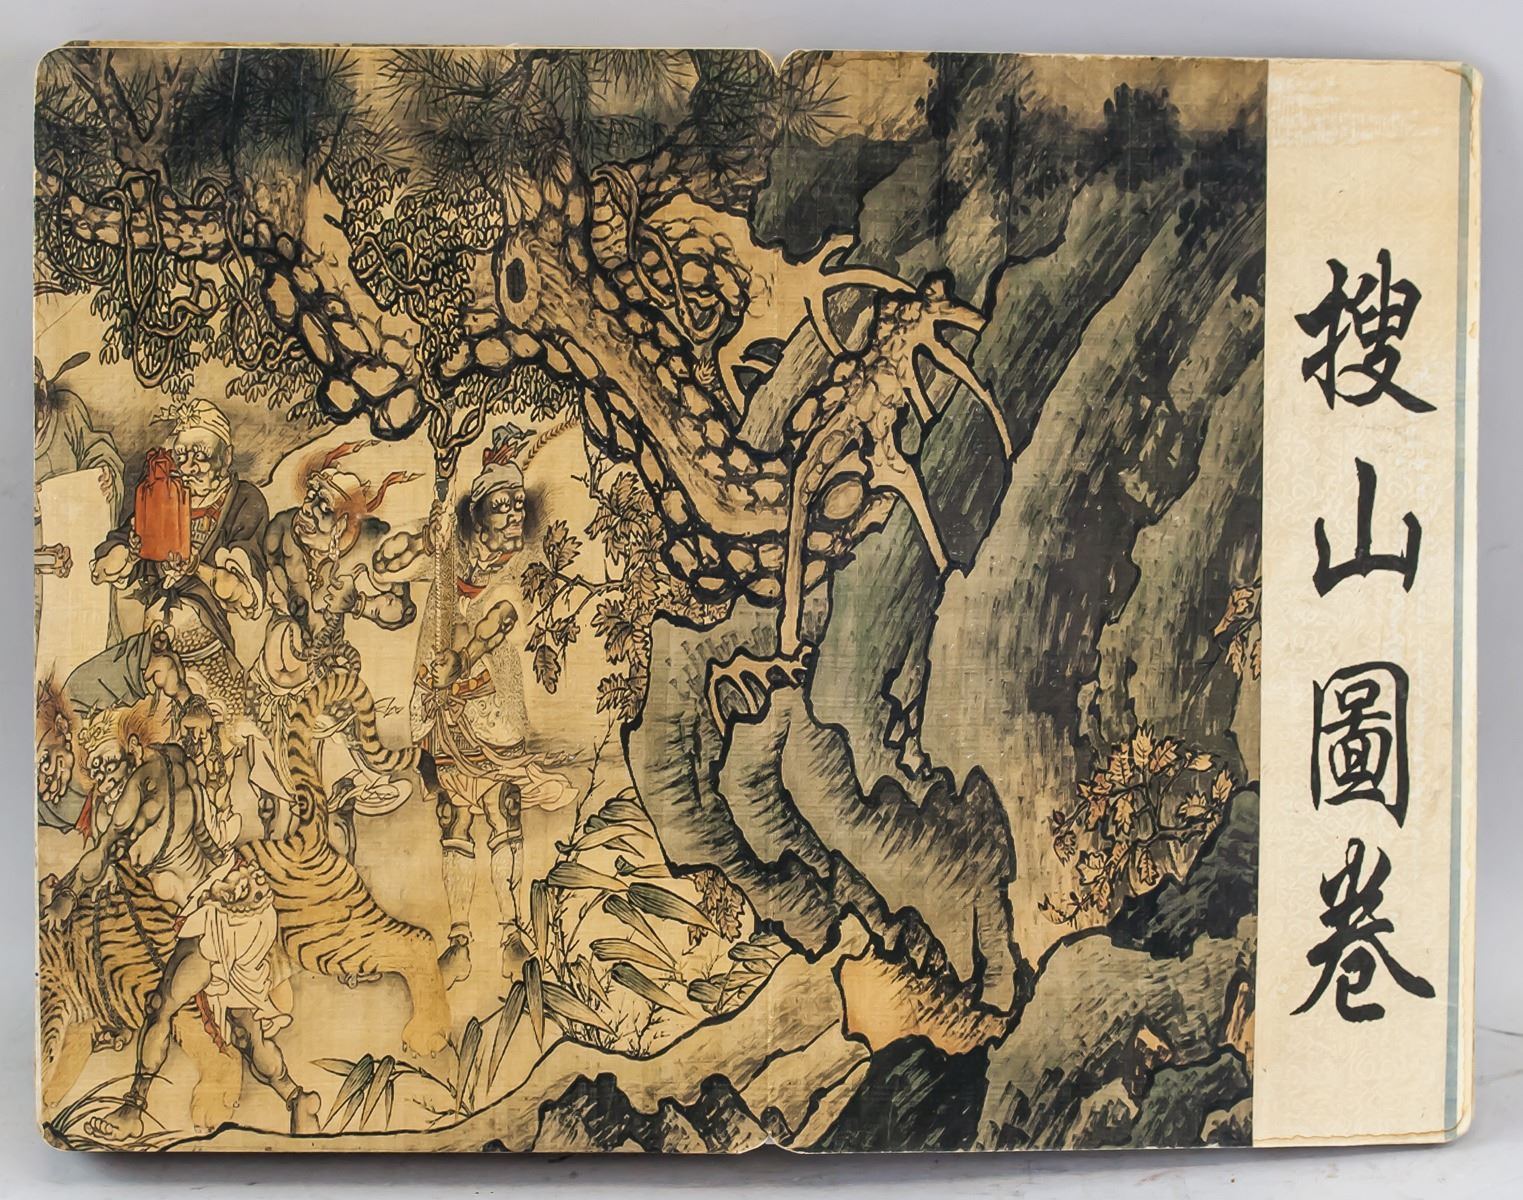 搜山圖卷